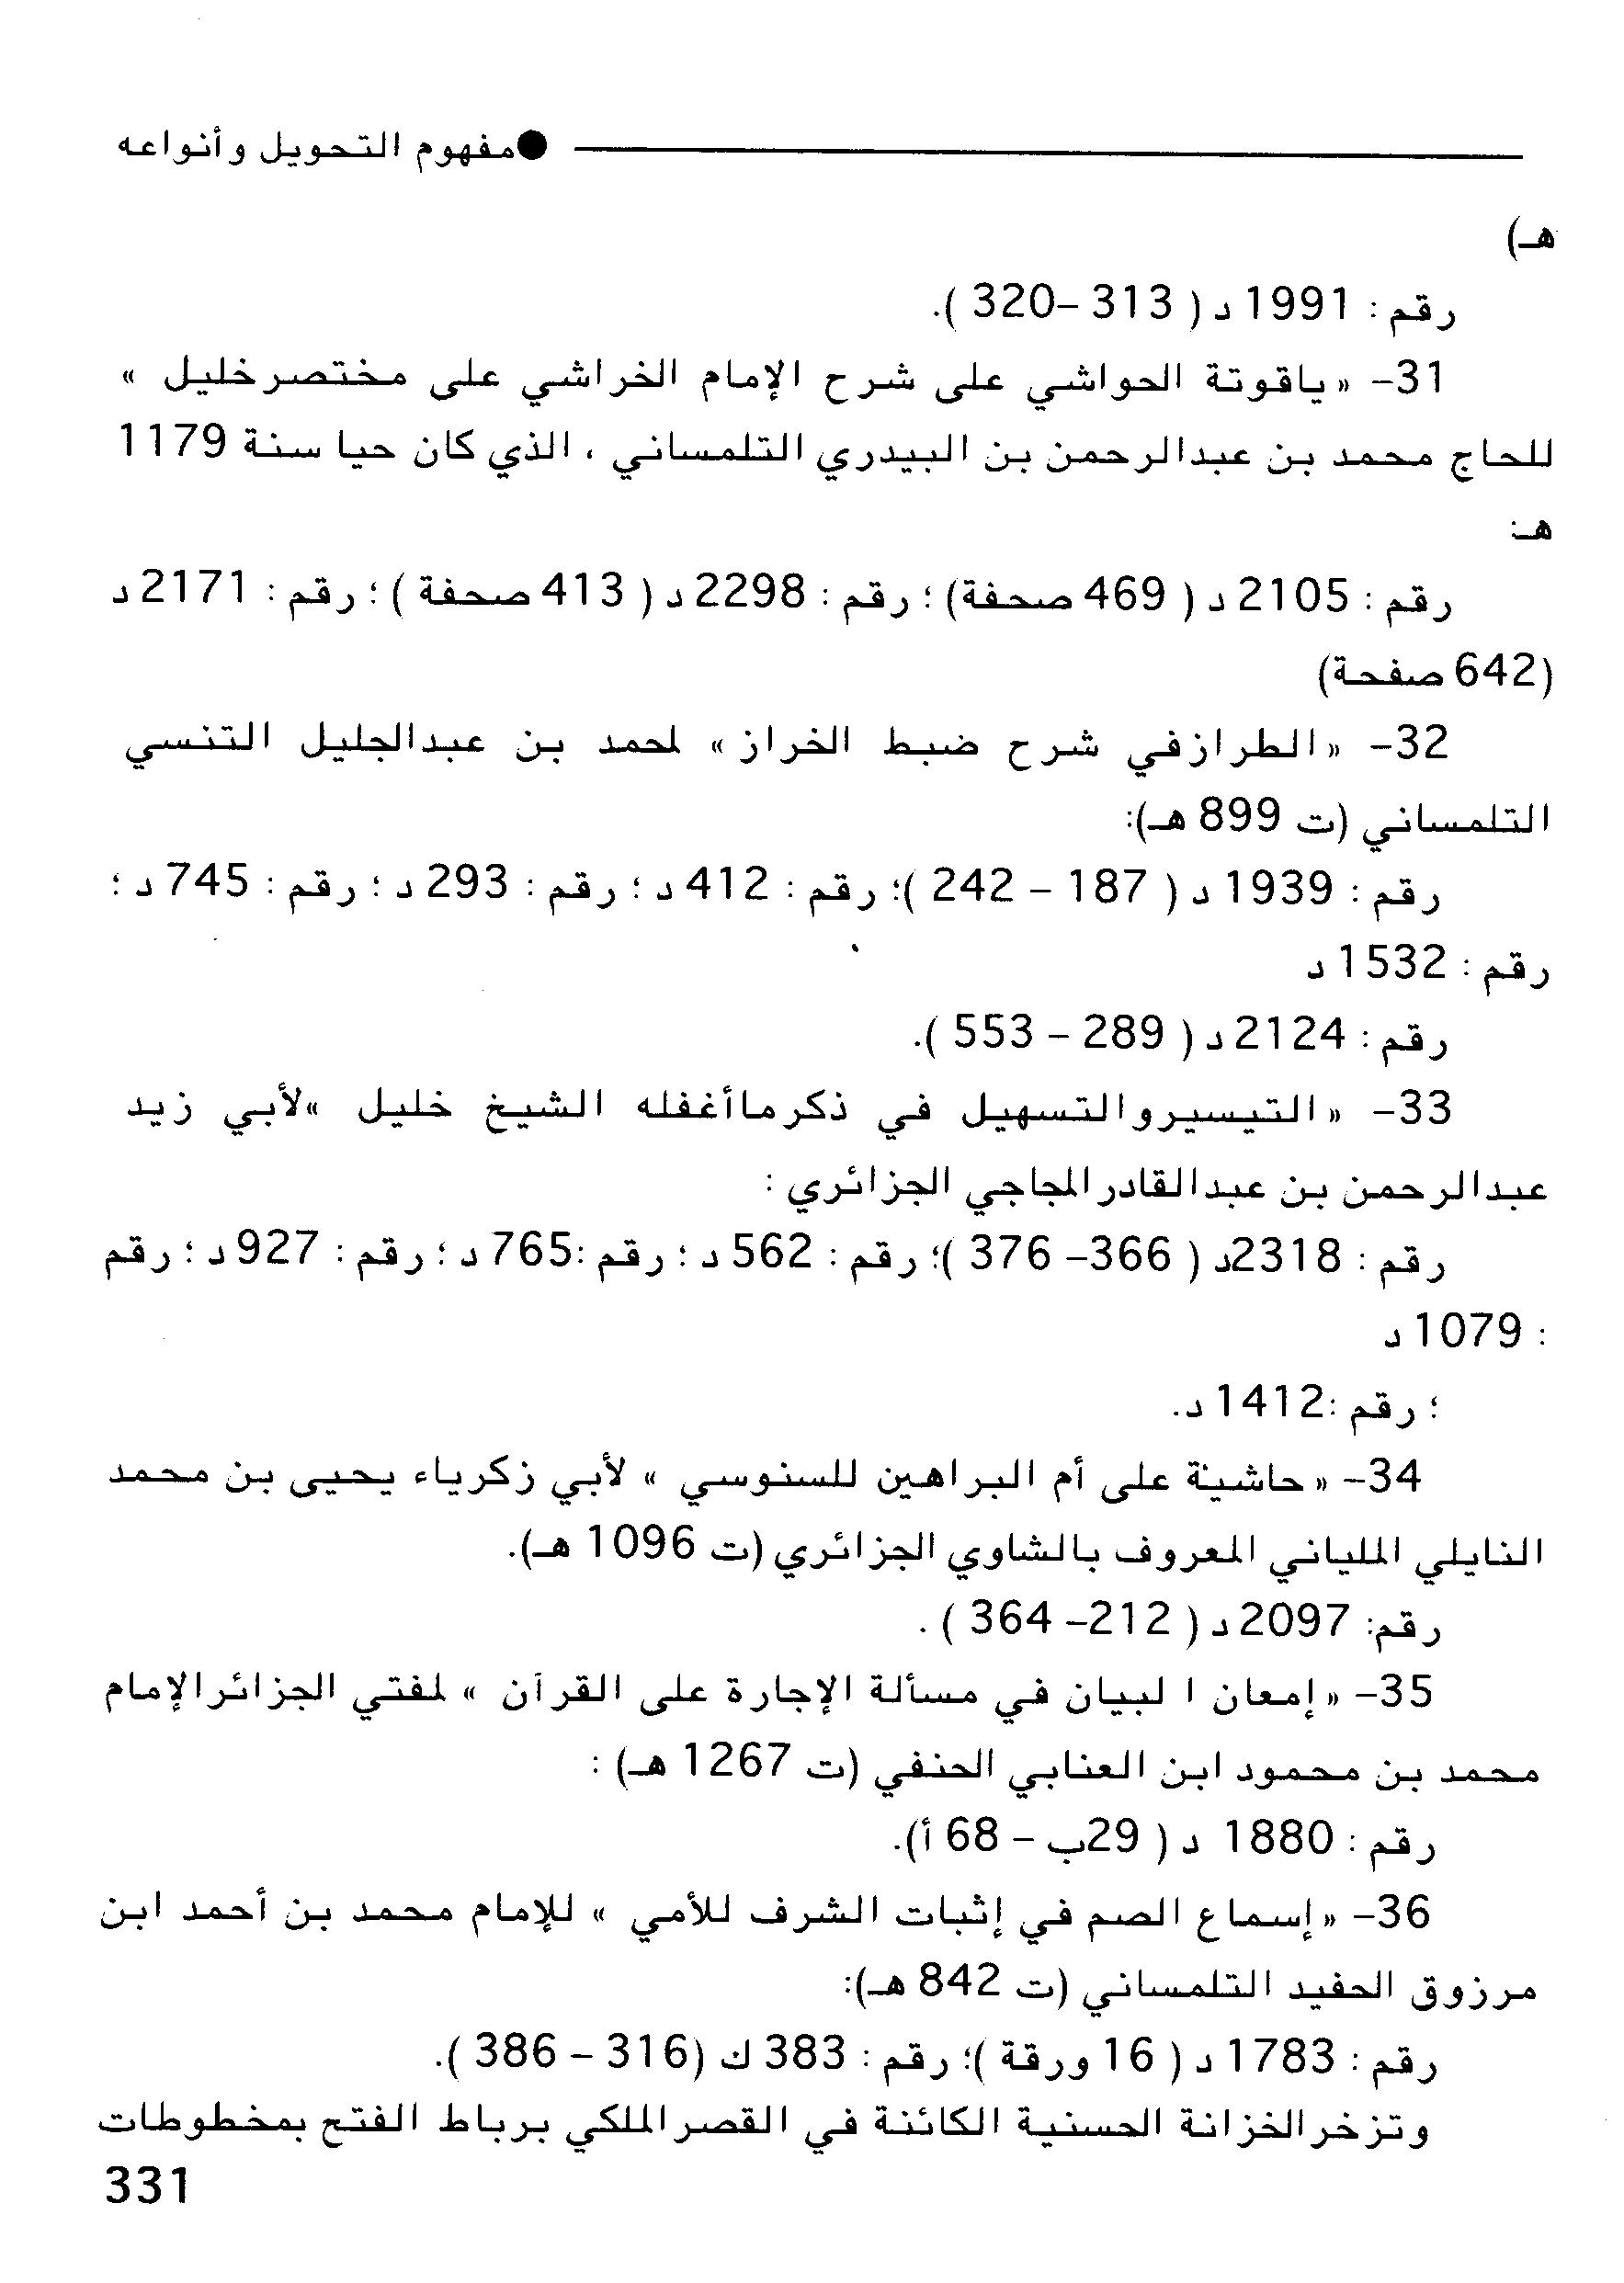 ●مفهوم التحويل وأنواعه
هـ)
رقم : 1991 د ( 313 –320 ).
31– « ياقوتة الحواشي على شرح الإمام الخراشي على مختصرخليل »
للحاج محمد بن عبدالرحمن بن البيدري التلمساني ، الذي كان حيا سنة 1179
هـ:
رقم : 2105 د ( 469 صحفة) ؛ رقم : 2298 د ( 413 صحفة ) ؛ رقم : 2171 د
(642 صفحة)
32– « الطرازفي شرح ضبط الخراز » لحمد بن عبدالجليل التنسي
التلمساني (ت 899 هـ):
رقم : 1939 د ( 187 – 242 )؛ رقم : 412 د ؛ رقم : 293 د ؛ رقم : 745 د ؛
رقم : 1532 د
رقم : 2124 د ( 289 – 553 ).
33– « التيسيروالتسهيل في ذكرماأغفله الشيخ خليل »لأبي زيد
عبدالرحمن بن عبدالقادرالمجاجي الجزائري :
رقم : 2318د ( 366– 376 )؛ رقم : 562 د ؛ رقم :765 د ؛ رقم : 927 د ؛ رقم
: 1079 د
؛ رقم :1412 د.
34– « حاشية على أم البراهين للسنوسي » لأبي زكرياء يحيى بن محمد
النايلي الملياني المعروف بالشاوي الجزائري (ت 1096 هـ).
رقم: 2097 د ( 212– 364 ) .
35– « إمعان ا لبيان في مسألة الإجارة على القرآن » لمفتي الجزائرالإمام
محمد بن محمود ابن العنابي الحنفي (ت 1267 هـ) :
رقم : 1880 د ( 29ب – 68 أ).
36– « إسماع الصم في إثبات الشرف للأمي » للإمام محمد بن أحمد ابن
مرزوق الحفيد التلمساني (ت 842 هـ):
رقم : 1783 د ( 16 ورقة )؛ رقم : 383 ك (316 – 386 ).
وتزخرالخزانة الحسنية الكائنة في القصرالملكي برباط الفتح بمخطوطات
331